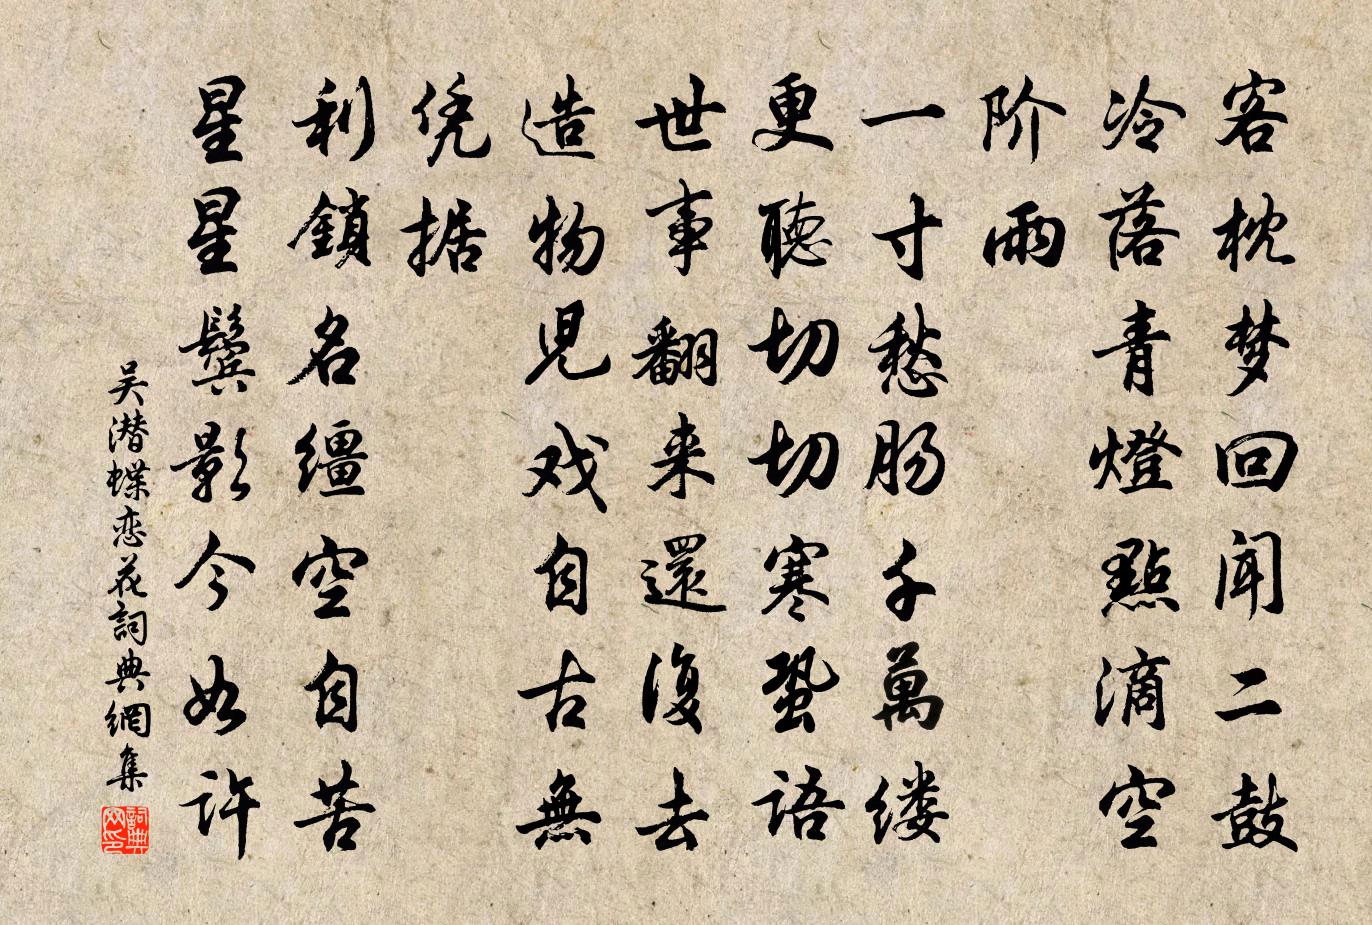 客枕梦回闻二鼓
冷落青燈點滴空
阶雨
一寸愁肠千萬缕
更聽切切寒蛩语
世事翻来還復去
造物児戏自古無
凭据
利鎖名缰空自苦
星星鬓影今如许
吴潜蝶恋花詞典網集
詞典
网印